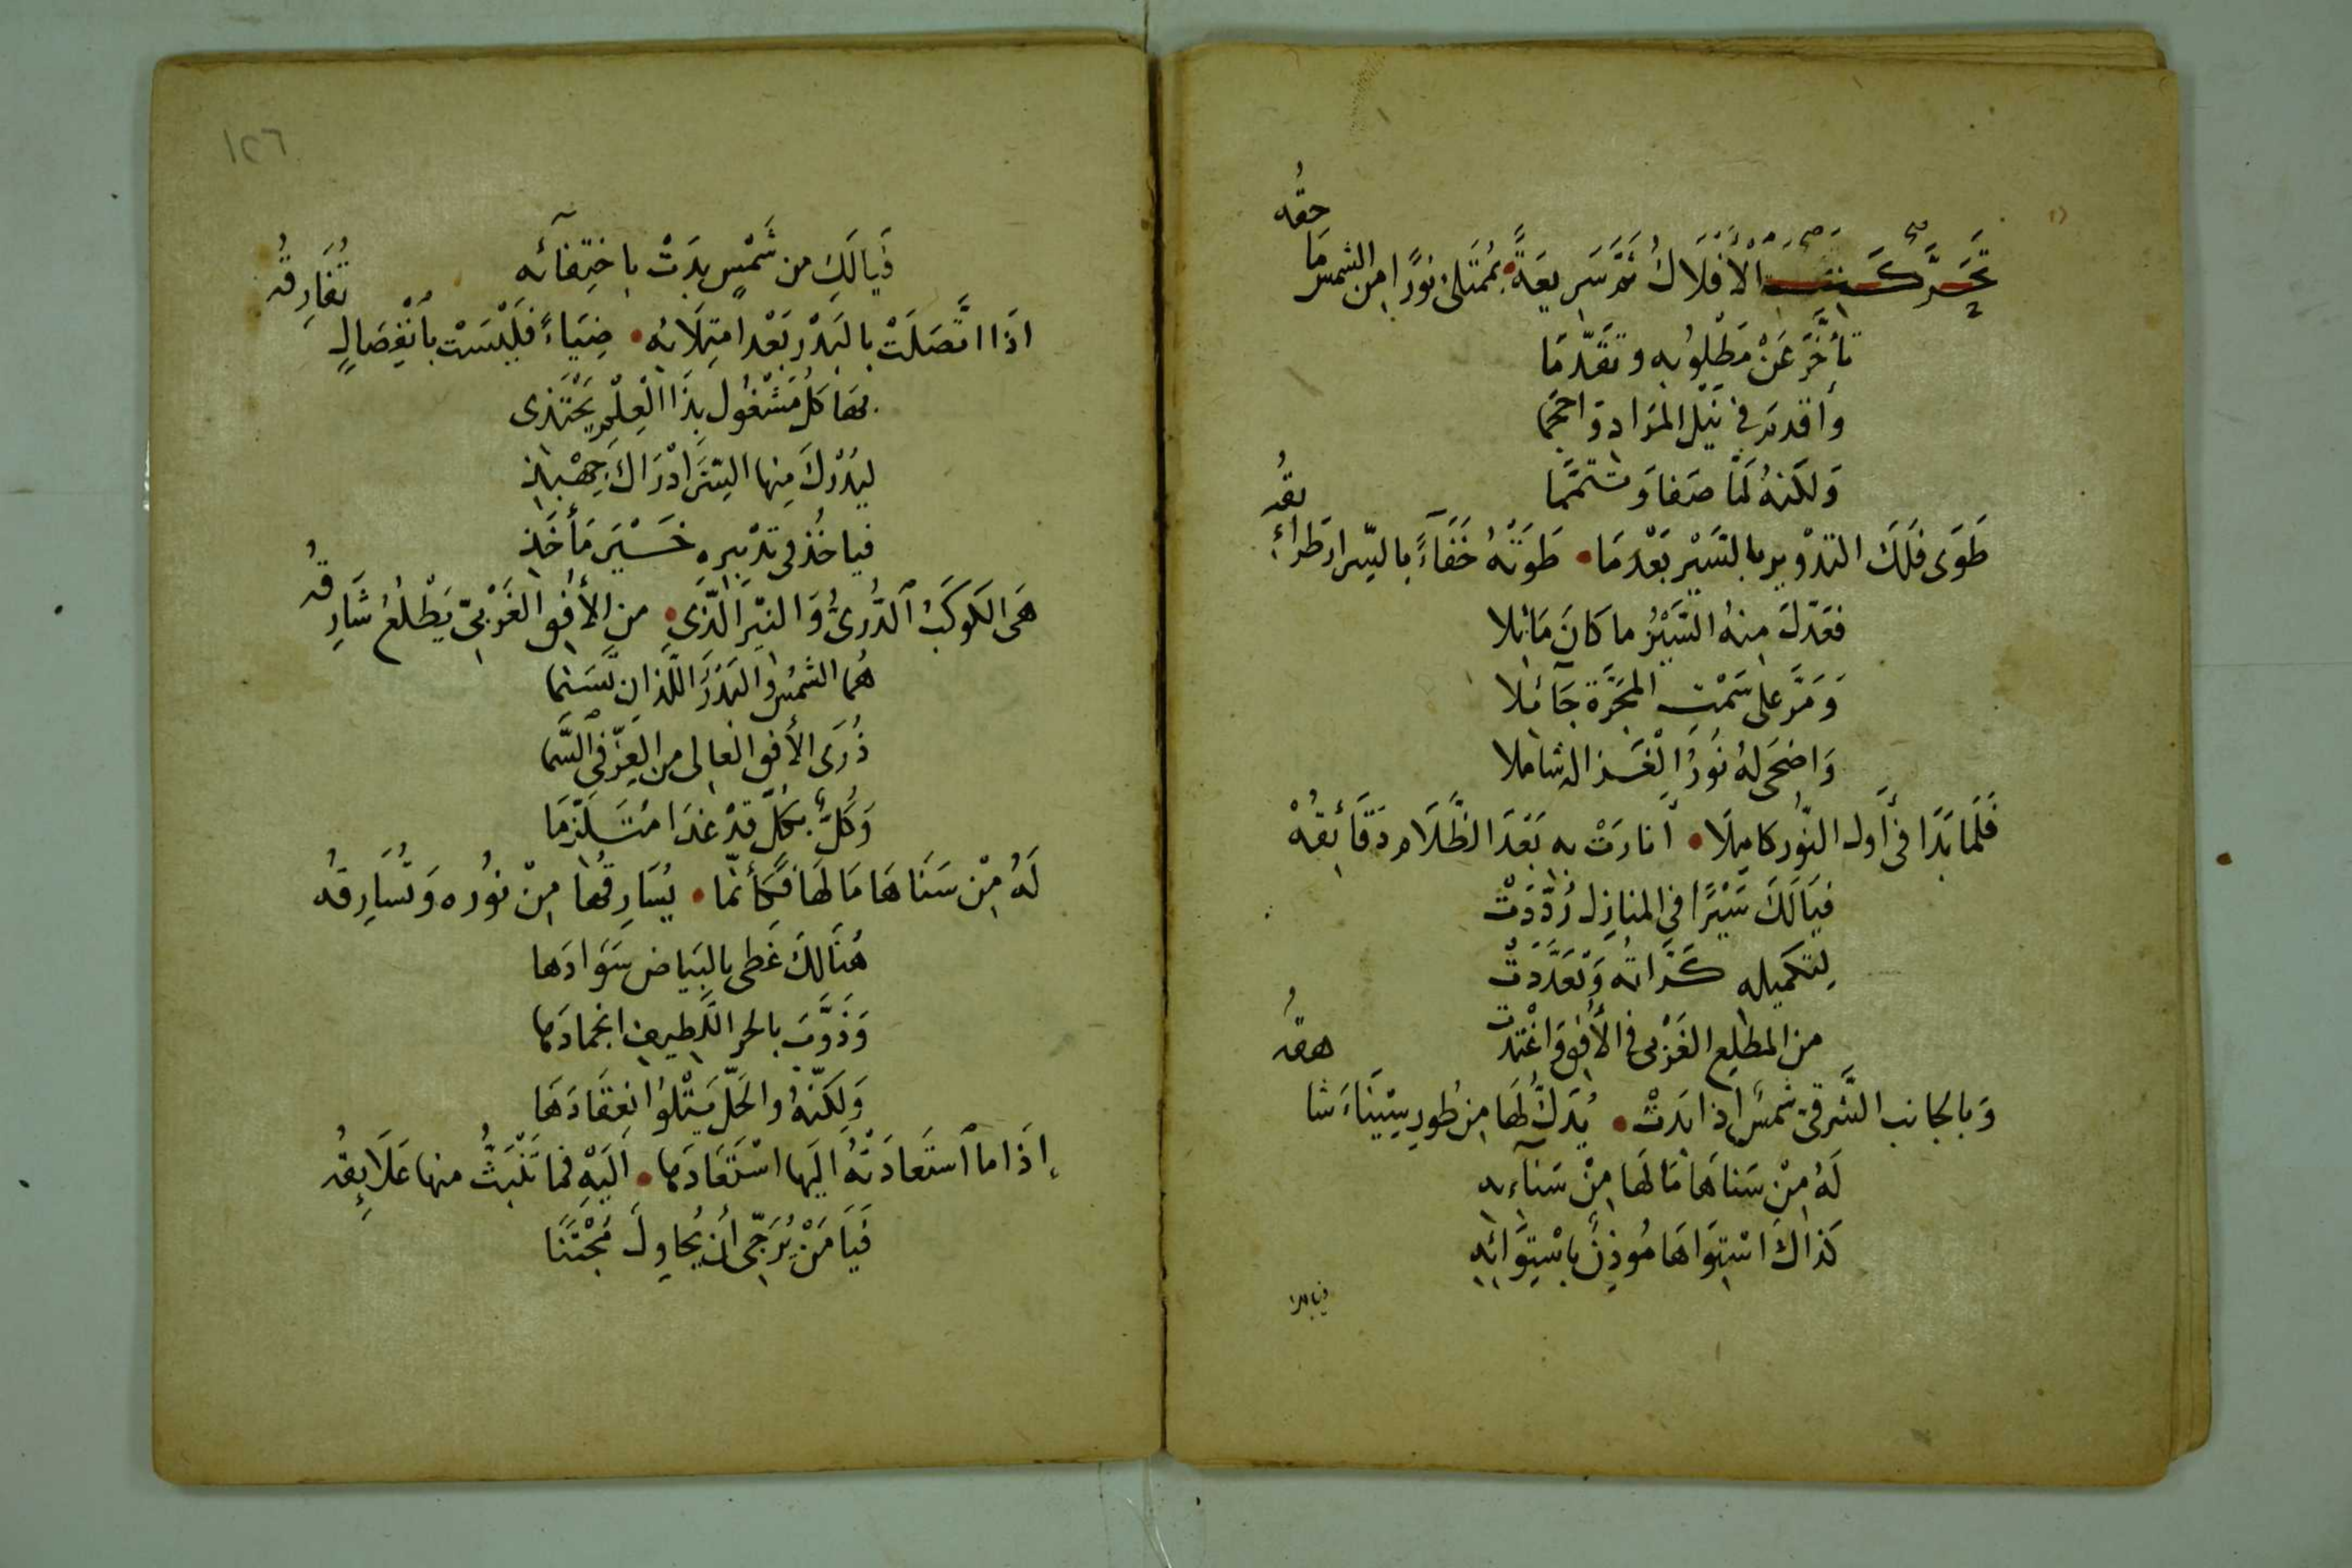 تَحَرَّكَتِ الأَفْلَاكُ ثُمَّ سَرِيعَةً • بِمُمْتَلِئٍ نُورًا مِنَ الشمسِ مَاحِقُه
تَأَخَّرَ عَنْ مَطْلُوبِهِ وتَقَدَّمَا
وَأَقْدَمَ فِي نَيْلِ المُرَادِ وَاحْجَمَا
وَلَكِنَّهُ لَمَّا صَفَا وَتَتَمَّمَا
طَوَى فَلَكَ التَدْوِيرِ بِالسَّيْرِ بَعْدَمَا • طَوَتْهُ خَفَآءً بِالسِّرَارِ طَرَائِقُه
فَعَدَّلَ مِنهُ السَّيْرُ ما كَانَ مَائِلَا
وَمَرَّ عَلى سَمْتِ المَجَرَّةِ جَآئِلَا
وَاضحَى لهُ نُورُ الْغَزَالةِ شَامِلا
فَلَمَّا بَدَا فِي أَوَّلِ النُّورِ كَامِلَا • أَنَارَتْ بِهِ بَعْدَ الظَّلَامِ دَقَآئِقُهْ
فَيَالَكَ سَيْرًا فِي المنَازِلِ رُدِّدَتْ
لِتَكْمِيلِهِ كَرَّاتُهُ وَتَعَدَّدَتْ
مِنَ المَطْلَعِ الغَرْبِي فِي الأُفْقِ وَاغْتَدَتْ
وَبِالجَانِبِ الشَّرقيِّ شَمسٌ إِذَا بَدَتْ • يُدَكُّ لَهَا مِنْ طُورِ سِيْنَاءَ شَاهِقُه
لَهُ مِنْ سَنَاهَا مَا لَهَا مِنْ سَنَآءِهِ
كَذَاكَ اسْتِوَاهَا مُوذِنٌ بِاسْتِوَائِهِ
فيالك
١٢٦
فَيَالَكِ مِن شَمْسٍ بَدَتْ بِاخْتِفَآئِه
اذَا اتَّصَلَتْ بِالبَدْرِ بَعْدَ امتِلَائِهِ • ضِيَاءً فَلَيْسَتْ بِانْفِصَالٍ تُفَارِقُه
بِهَا كُلُّ مَشْغُولٍ بِذَا الْعِلْمِ يَحْتَذِى
لِيُدْرِكَ مِنهَا السِّرَّ ادْرَاكَ جِهْبِذِ
فيا خُذُ فِي تَدْبِيرِهِ خَيْرَ مَأْخَذِ
هَيَ الكَوكَبُ الدُّرِىُّ وَالنَيِّرُ الَّذِي • مِنَ الأُفُقِ الغَرْبِيِّ يَطْلُعُ شَارِقُه
هُمَا الشَمسُ وَالبَدْرُ اللَّذَانِ تَسَنَّمَا
ذُرَى الأُفقِ العَالِي مِنَ العِزِّ فِي السَّمَا
وَكُلٌّ بِكُلٍّ قَدْ غَدَا مُتَلَزِّمَا
لَهُ مِنْ سَنَاهَا مَا لَهَا فَكَأَنَّمَا • يُسَارِقُهَا مِنْ نُورِهِ وَتُسَارِقُه
هُنَالِكَ غَطى بِالبَيَاضِ سَوَادَهَا
وَذَوَّبَ بِالحَرِّ اللَّطِيفِ انجِمَادَهَا
وَلَكِنَّهُ وَالحَلُّ يَتْلُو انعِقَادَهَا
إِذَا مَا اسْتَعَادَتْهُ اليهَا اسْتَعَادَهَا • اَلَيْهِ فَمَا تَنْبَتُّ مِنهَا عَلَايِقُه
فَيَا مَنْ يُرَجِّى أَن يُحَاوِلَ مُجْتَنَا